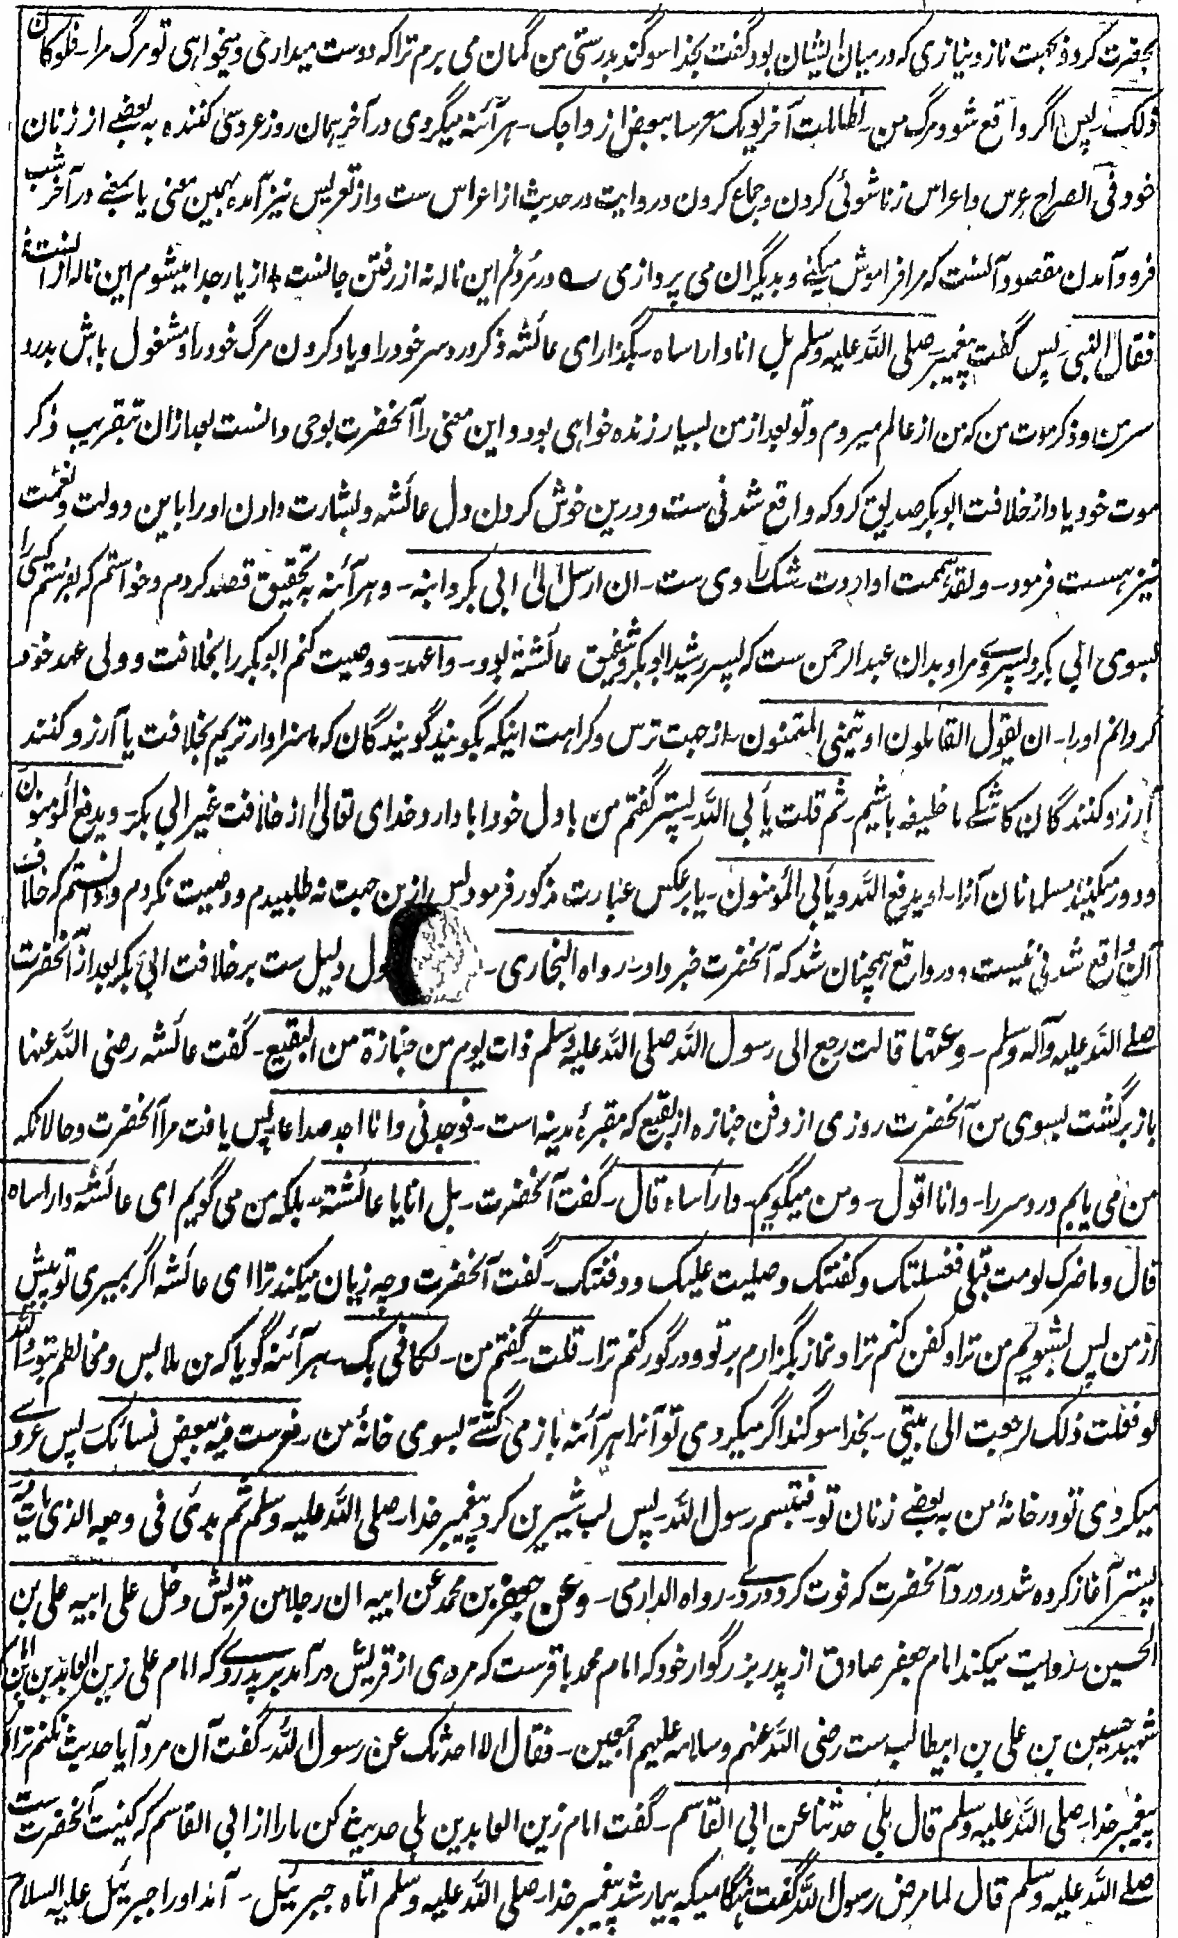 بحضرت کرد و بجهت ناز و نیازی که درمیان ایشان بود گفت بخدا سوگند بدرستی من گمان می برم ترا که دوست میداری و میخواهی تو مرگ مرا۔ فلو کان
ذلک۔ پس اگر واقع شود مرگ من۔ لظللت آخر یومک معرسا ببعض ازواجک۔ هر آئنه میگردی در آخر همان روز عروسی کننده به بعضے از زنان
خود فی الصراح عرس و اعراس زناشوئی کردن و جماع کردن و روایت در حدیث از اعراس ست و از تعریس نیز آمده بهمین معنی یا بمعنے در آخر شب
فرود آمدن مقصود آنست که مرا فراموش میکنے و بدیگران می پردازی ؎ در مُردنم این ناله نه از رفتن جانست ٭ از یار جدا میشوم این ناله ازانست
فقال النبی۔ پس گفت پیغمبر۔ صلی الله علیه وسلم بل انا وا راساه۔ بگذار ای عائشه ذکر درد سر خود را و یاد کردن مرگ خود را و مشغول باش بدرد
سر من و ذکر موت من که من از عالم میروم و تو بعد از من بسیار زنده خواهی بود و این معنی را آنحضرت بوحی دانست بعد ازان بتقریب ذکر
موت خود یاد از خلافت ابوبکر صدیق کرد که واقع شدنی ست و درین خوش کردن دل عائشه و بشارت دادن او را باین دولت و نعمت
نیز هست فرمود۔ ولقد هممت او اردت۔ شک راوی ست۔ ان ارسل الی ابی بکر وابنه۔ و هر آئنه به تحقیق قصد کردم و خواستم که بفرستم کسی را
بسوی ابی بکر و پسر وے و مراد بدان عبدالرحمن ست که پسر رشید ابوبکر و شقیق عائشه بود۔ واعهد۔ و وصیت کنم ابوبکر را بخلافت و ولی عهد خود
گردانم او را۔ ان یقول القائلون او یتمنی المتمنون۔ از جهت ترس و کراهت اینکه بگویند گویندگان که ما سزاوارتریم بخلافت یا آرزو کنند
آرزو کنندگان کاشکے ما خلیفه باشیم۔ ثم قلت یأبی الله۔ پستر گفتم من با دل خود ابا دارد خدای تعالیٰ از خلافت غیر ابی بکر۔ ویدفع المؤمنون
و دور میکنند مسلمانان آنرا۔ او یدفع الله ویأبی المؤمنون۔ یا برعکس عبارت مذکور فرمود پس ازین جهت نه طلبیدم و وصیت نکردم و دانستم که خلافت
آن واقع شدنی نیست و در واقع همچنان شد که آنحضرت خبر داد۔ رواه البخاری۔ ول دلیل ست بر خلافت ابی بکر بعد از آنحضرت
صلے الله علیه وآله وسلم۔ وعنها قالت رجع الی رسول الله صلی الله علیه وسلم ذات یوم من جنازة من البقیع۔ گفت عائشه رضی الله عنها
باز برگشت بسوی من آنحضرت روزی از دفن جنازه از بقیع که مقبرهٔ مدینه است۔ فوجدنی وانا اجد صداعا۔ پس یافت مرا آنحضرت و حالانکه
من می یابم درد سر را۔ وانا اقول۔ و من میگویم۔ وا رأساه قال۔ گفت آنحضرت۔ بل انا یا عائشة۔ بلکه من می گویم ای عائشه وا راساه
قال وما ضرک لو مت قبلی فغسلتک وکفنتک وصلیت علیک ودفنتک۔ گفت آنحضرت و چه زیان میکند ترا ای عائشه اگر بمیری تو پیش
از من پس بشویم من ترا و کفن کنم ترا و نماز بگزارم بر تو و در گور کنم ترا۔ قلت۔ گفتم من۔ لکانی بک۔ هر آئنه گویا که من ملابس و مخالطم بتو۔ والله
لو فعلت ذلک لرجعت الی بیتی۔ بخدا سوگند اگر میکردی تو آنرا هر آئنه باز می گشتے بسوی خانهٔ من۔ فعرست فیه ببعض نسائک۔ پس عروسے
میکردی تو در خانهٔ من به بعضے زنان تو۔ فتبسم رسول الله۔ پس لب شیرین کرد پیغمبر خدا۔ صلی الله علیه وسلم ثم بدئ فی وجعه الذی مات فیه
پستر آغاز کرده شد در درد آنحضرت که فوت کرد درو۔ رواه الدارمی۔ وعن جعفر بن محمد عن ابیه ان رجلا من قریش دخل علی ابیه علی بن
الحسین۔ روایت میکند امام جعفر صادق از پدر بزرگوار خود که امام محمد باقر ست که مردی از قریش درآمد بر پدر وے که امام علی زین العابدین ابن امام
شهید حسین بن علی بن ابیطالب ست رضی الله عنهم و سلامه علیهم اجمعین۔ فقال الا احدثک عن رسول الله۔ گفت آن مرد آیا حدیث نکنم ترا از
پیغمبر خدا۔ صلی الله علیه وسلم قال بلی حدثنا عن ابی القاسم۔ گفت امام زین العابدین بلی حدیث کن ما را از ابی القاسم که کنیت آنحضرت ست
صلے الله علیه وسلم قال لما مرض رسول الله گفت هنگامیکه بیمار شد پیغمبر خدا۔ صلی الله علیه وسلم اتاه جبرئیل۔ آمد او را جبرئیل علیه السلام